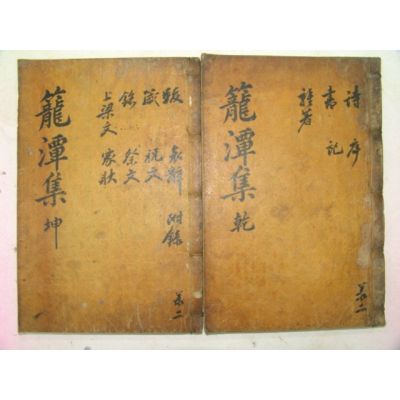 籠潭集 乾
詩 序
書 記
雜著
共二
籠潭集 坤
跋 哀辭 附錄
箴 祝文
銘 祭文
上梁文 家狀
共二